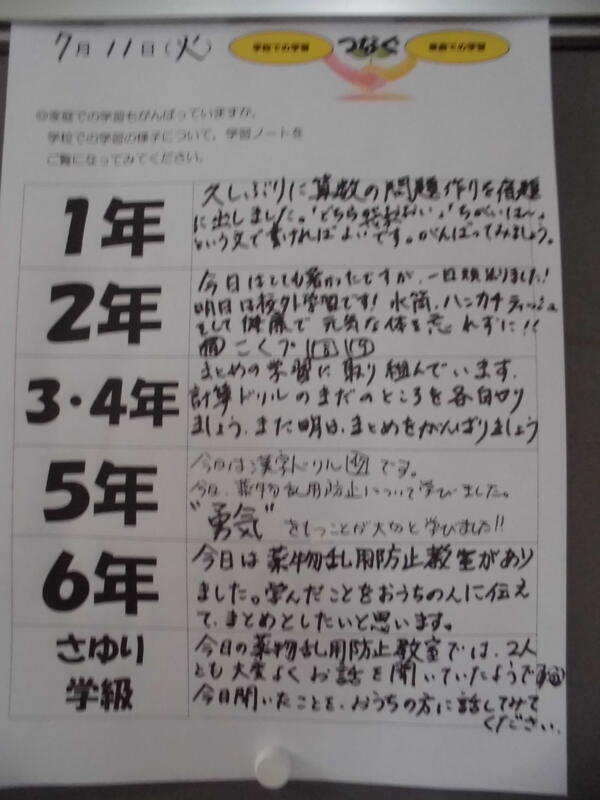 7月11日(火)
学校での学習 つなぐ 家庭での学習
◎家庭での学習もがんばっていますか。
学校での学習の様子について,学習ノートを
ご覧になってみてください。
1年
久しぶりに算数の問題作りを宿題
に出しました。「どちら おおい」「ちがいは〜」
という文で書ければよいです。がんばってみましょう。
2年
今日はとても暑かったですが、一日頑張りました!
明日は校外学習です! 水筒、ハンカチ ティッシュ
そして健康で元気な体を忘れずに!!
こくプ 18 19
3・4年
まとめの学習に取り組んでいます。
計算ドリルのまだのところを各自やり
ましょう。また明日、まとめをがんばりましょう
5年
今日は漢字ドリル です。
今日、薬物乱用防止について学びました。
"勇気"をもつことが大切と学びました!!
6年
今日は薬物乱用防止教室があり
ました。学んだことをおうちの人に伝え
て、まとめとしたいと思います。
さゆり
学級
今日の薬物乱用防止教室では、2人
とも大変よくお話を聞いていたようです
今日聞いたことを、おうちの方に話してみて
ください。